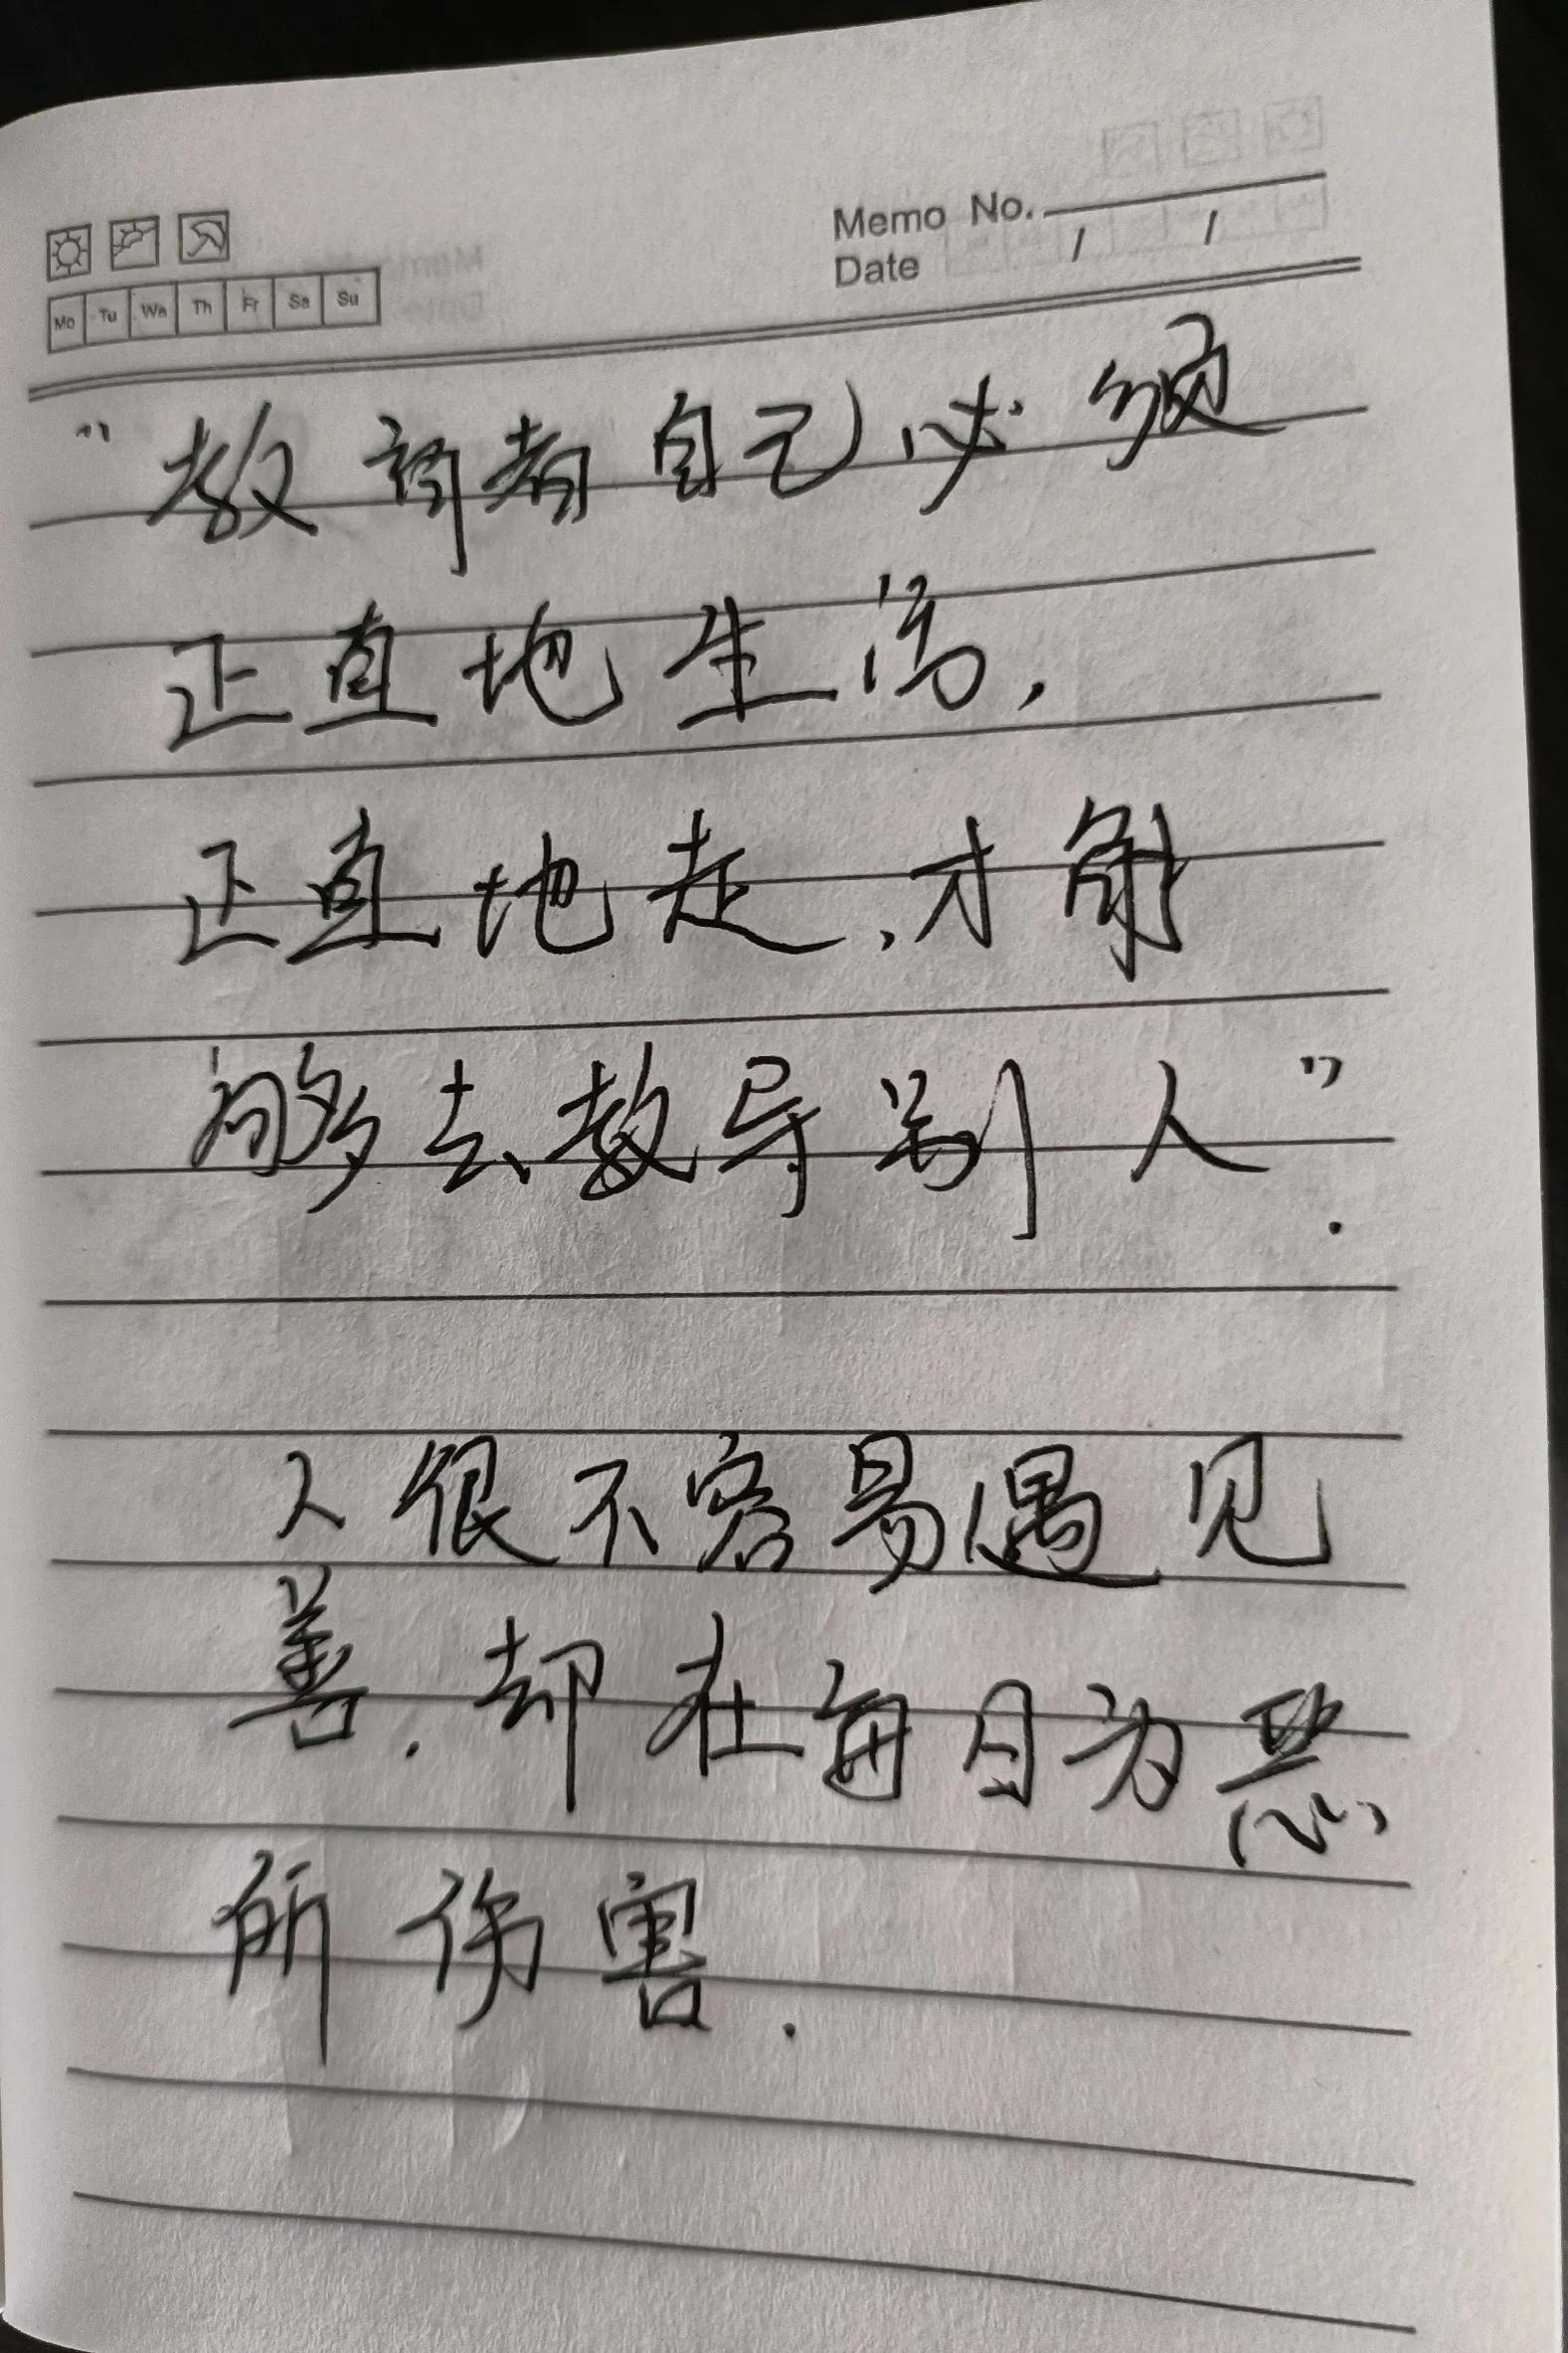 Memo No.
Date / /
Mo Tu We Th Fr Sa Su
“教育者自己必须
正直地生活,
正直地走,才能
够去教导别人”.
人很不容易遇见
善.却在每日为恶
所伤害.